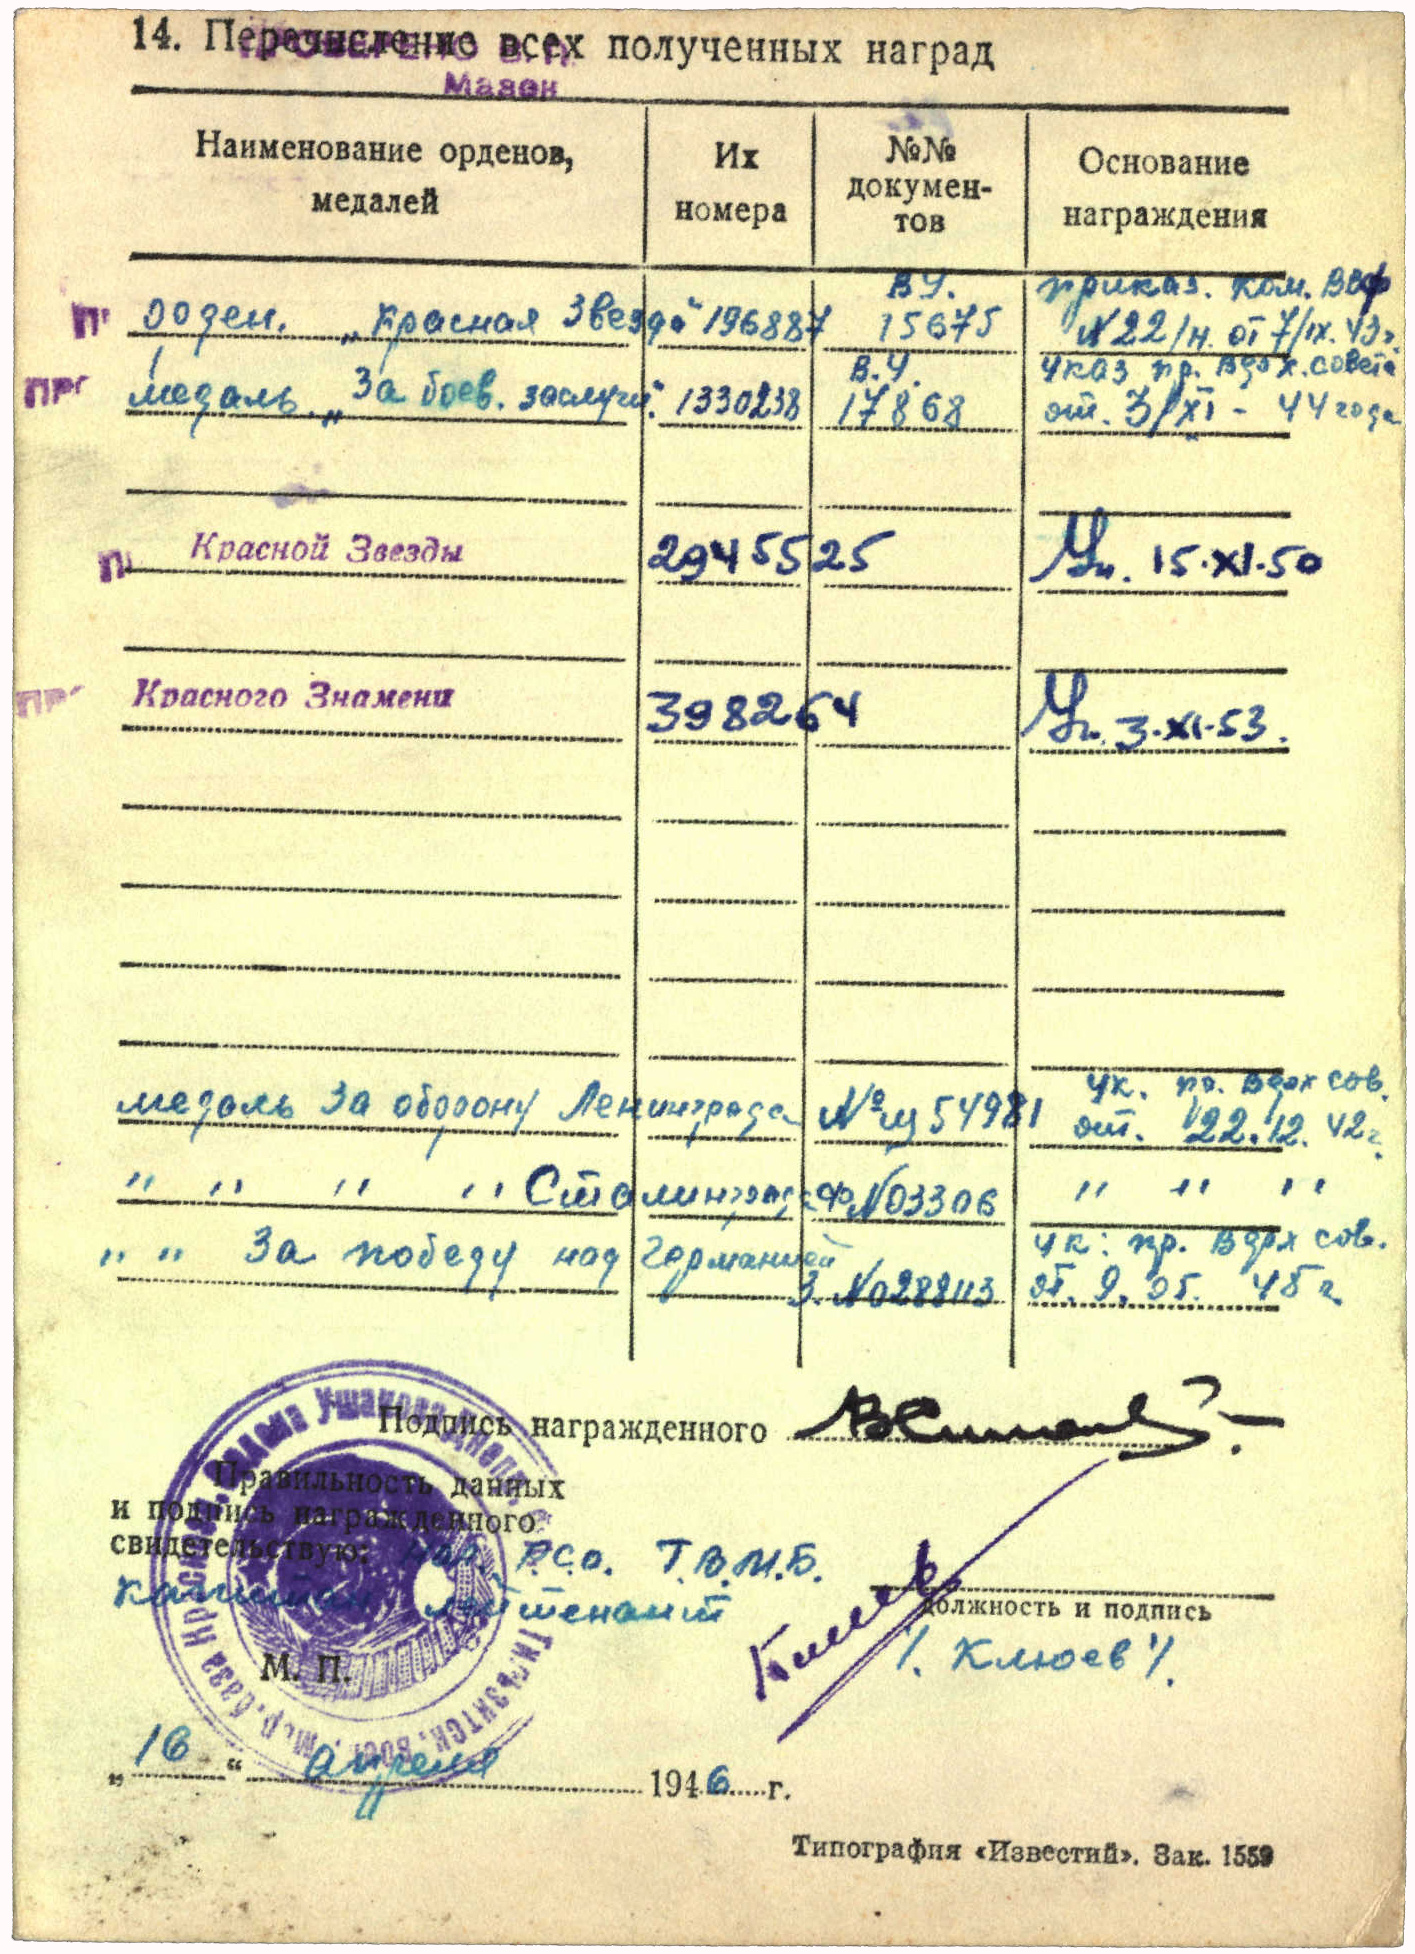 14. Перечисление всех полученных наград
Мазен
Наименование орденов, медалей
Их номера
№№ докумен-тов
Основание награждения
В.У. приказ. Ком. ВВФ
орден. „Красная Звезда" 196887 15675 № 22/н. от 7/IX. 43 г.
В.У. Указ пр. Верх. совета
медаль „За боев. заслуги". 1330238 17868 от. 3/XI - 44 года
Красной Звезды 2945525 Ук. 15.XI.50
Красного Знамени 398264 Ук. 3.XI.53.
Ук. пр. Верх сов.
медаль За оборону Ленинграда № 54981 от. 22.12. 42 г.
" " " " Сталинграда № 03306 " " "
Ук. пр. Верх сов.
" " За победу над Германией
З. № 0288113 от. 9. 05. 45 г.
Подпись награжденного
Правильность данных
и подпись награжденного
свидетельствую: Нач. Р.С.О. Т.В.М.Б.
капитан лейтенант
должность и подпись
/. Клюев /.
М. П.
„16" апреля 1946 г.
Типография «Известий». Зак. 1559